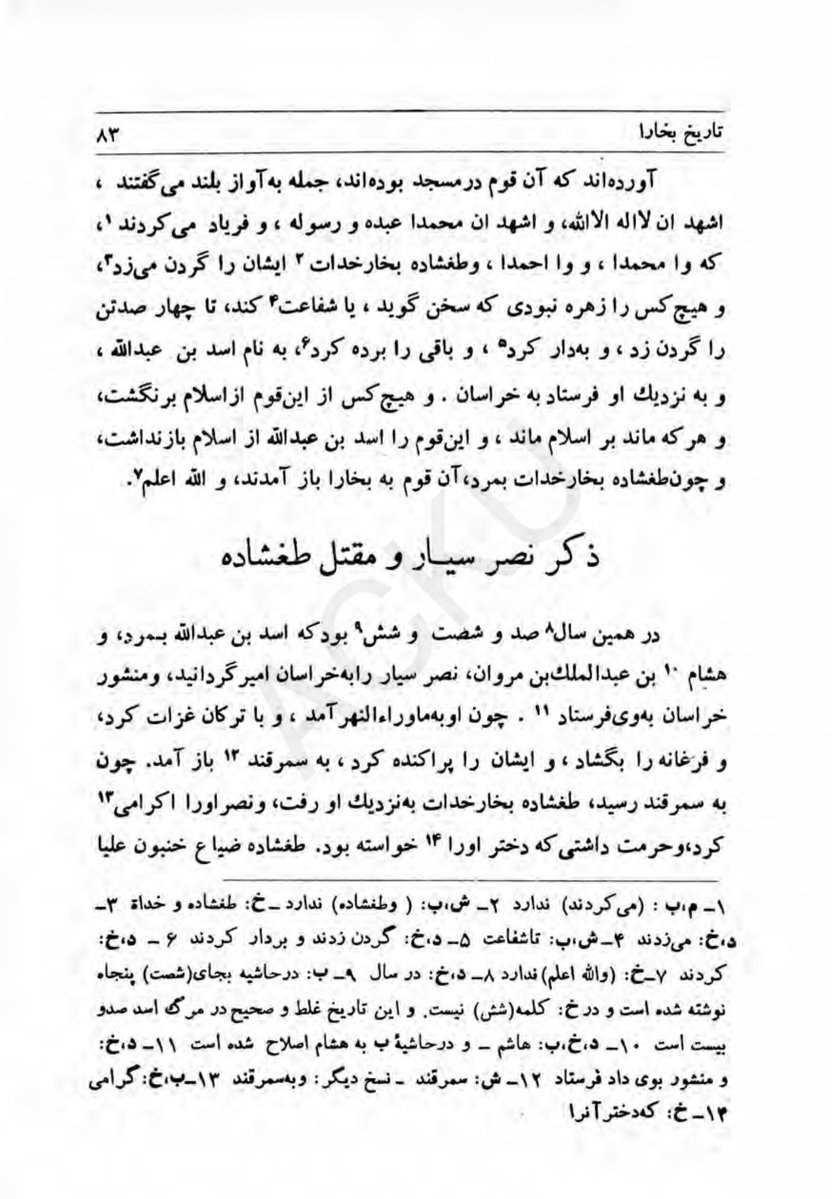 تاریخ بخارا ۸۳
آورده‌اند که آن قوم در مسجد بوده‌اند، جمله به‌آواز بلند می‌گفتند ،
اشهد ان لااله الاالله، و اشهد ان محمدا عبده و رسوله ، و فریاد می‌کردند ۱،
که وا محمدا ، و وا احمدا ، وطغشاده بخارخدات ۲ ایشان را گردن می‌زد۳،
و هیچ‌کس را زهره نبودی که سخن گوید ، یا شفاعت۴ کند، تا چهار صدتن
را گردن زد ، و به‌دار کرد۵ ، و باقی را برده کرد۶، به نام اسد بن عبدالله ،
و به نزدیك او فرستاد به خراسان . و هیچ‌کس از این‌قوم ازاسلام برنگشت،
و هرکه ماند بر اسلام ماند ، و این‌قوم را اسد بن عبدالله از اسلام بازنداشت،
و چون‌طغشاده بخارخدات بمرد،آن قوم به بخارا باز آمدند، و الله اعلم۷.
ذکر نصر سیـار و مقتل طغشاده
در همین سال۸ صد و شصت و شش۹ بودکه اسد بن عبدالله بـمرد، و
هشام ۱۰ بن عبدالملك‌بن مروان، نصر سیار رابه‌خراسان امیرگردانید، ومنشور
خراسان به‌وی‌فرستاد ۱۱ . چون اوبه‌ماوراءالنهرآمد ، و با ترکان غزات کرد،
و فرغانه را بگشاد ، و ایشان را پراکنده کرد ، به سمرقند ۱۲ باز آمد. چون
به سمرقند رسید، طغشاده بخارخدات به‌نزدیك او رفت، ونصراورا اکرامی۱۳
کرد،وحرمت داشتی‌که دختر اورا ۱۴ خواسته بود. طغشاده ضیاع خنبون علیا
۱ـ م،ب : (می‌کردند) ندارد ۲ـ ش،ب: ( وطغشاده) ندارد ـ خ: طغشاده و خداة ۳ـ
د،خ: می‌زدند ۴ـ ش،ب: تاشفاعت ۵ـ د،خ: گردن زدند و بردار کردند ۶ ـ د،خ:
کردند ۷ـ خ: (والله اعلم)ندارد ۸ـ د،خ: در سال ۹ـ ب: درحاشیه بجای(شصت) پنجاه
نوشته شده است و در خ: کلمه(شش) نیست. و این تاریخ غلط و صحیح در مرگ اسد صدو
بیست است ۱۰ـ د،خ،ب: هاشم ـ و درحاشیهٔ ب به هشام اصلاح شده است ۱۱ـ د،خ:
و منشور بوی داد فرستاد ۱۲ـ ش: سمرقند ـ نسخ دیگر: وبه‌سمرقند ۱۳ـ ب،خ: گرامی
۱۴ـ خ: که‌دخترآنرا
ACKU